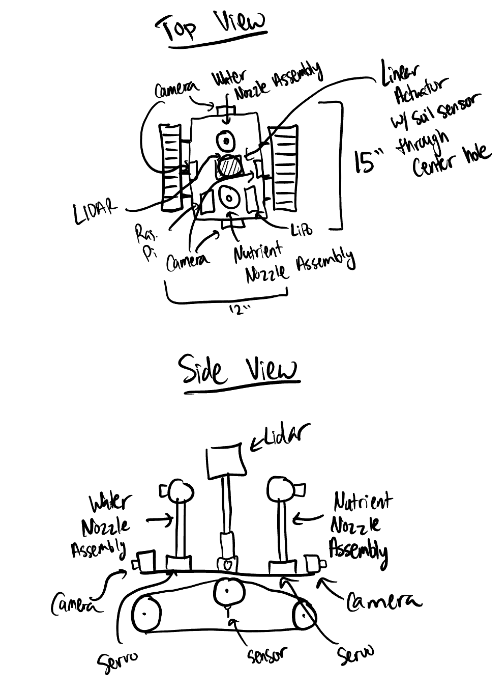 Top View
Camera
Water
Nozzle Assembly
Linear
Actuator
w/ soil sensor
through
Center hole
15"
LIDAR
Ras.
Pi
Camera
Nutrient
Nozzle Assembly
LiPo
12"
Side View
Lidar
Water
Nozzle
Assembly
Nutrient
Nozzle
Assembly
Camera
Camera
Servo
Sensor
Servo